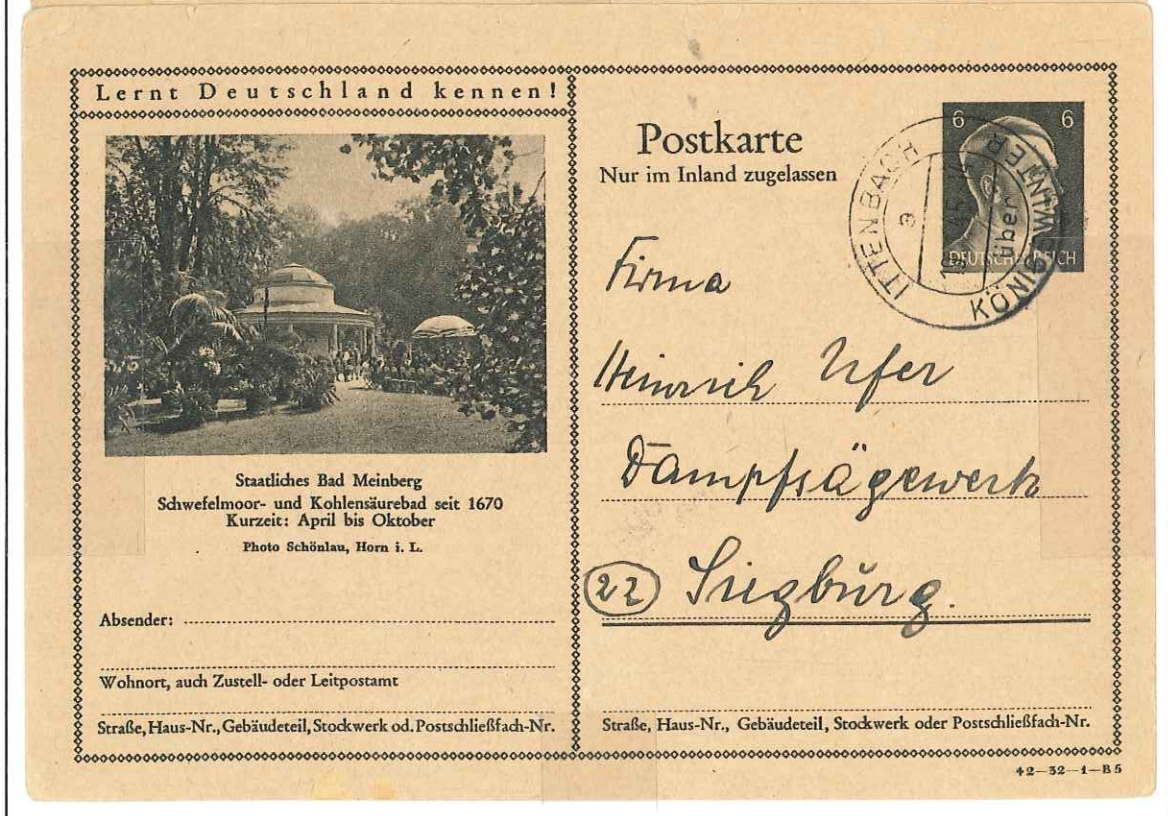 Lernt Deutschland kennen!
Staatliches Bad Meinberg
Schwefelmoor- und Kohlensäurebad seit 1670
Kurzeit: April bis Oktober
Photo Schönlau, Horn i. L.
Absender:
Wohnort, auch Zustell- oder Leitpostamt
Straße, Haus-Nr., Gebäudeteil, Stockwerk od. Postschließfach-Nr.
Postkarte
Nur im Inland zugelassen
6 6
DEUTSCHES REICH
ITTENBACH
a
über
KÖNIGSWINTER
Firma
Heinrich Ufer
Dampfsägewerk
22 Siegburg.
Straße, Haus-Nr., Gebäudeteil, Stockwerk oder Postschließfach-Nr.
42—32—1—B5